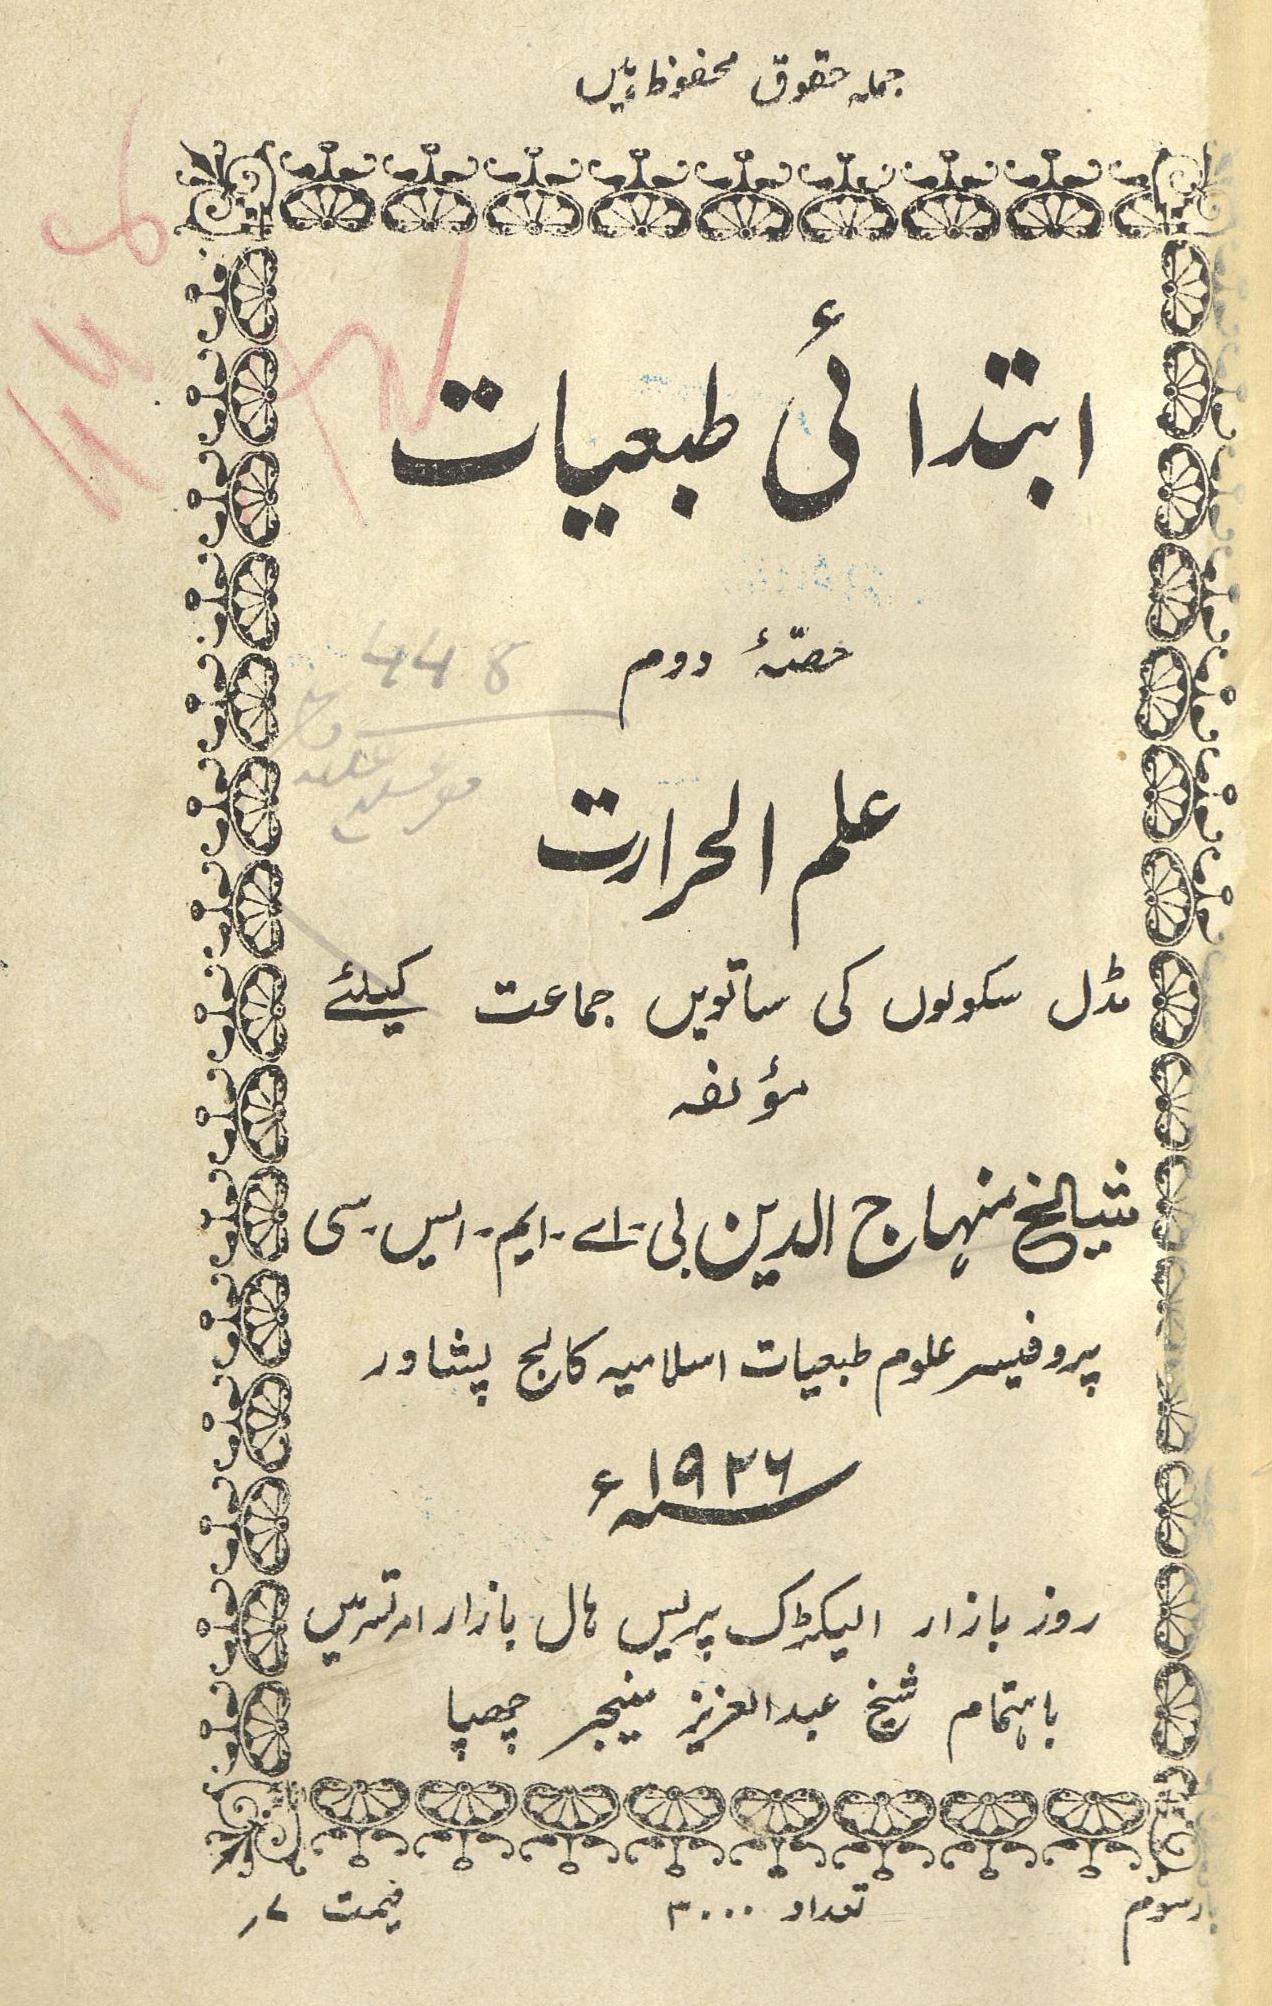 جملہ حقوق محفوظ ہیں
ابتدائی طبعیات
حصّۂ دوم
448
علم الحرارت
مڈل سکولوں کی ساتویں جماعت کیلئے
مؤلفہ
شیخ منہاج الدین بی-اے-ایم-ایس-سی
پروفیسر علوم طبعیات اسلامیہ کالج پشاور
۱۹۲۶ء
روز بازار الیکٹرک پریس ہال بازار امرتسر میں
باہتمام شیخ عبدالعزیز مینیجر چھپا
بار سوم تعداد ۳۰۰۰ قیمت ۷؍